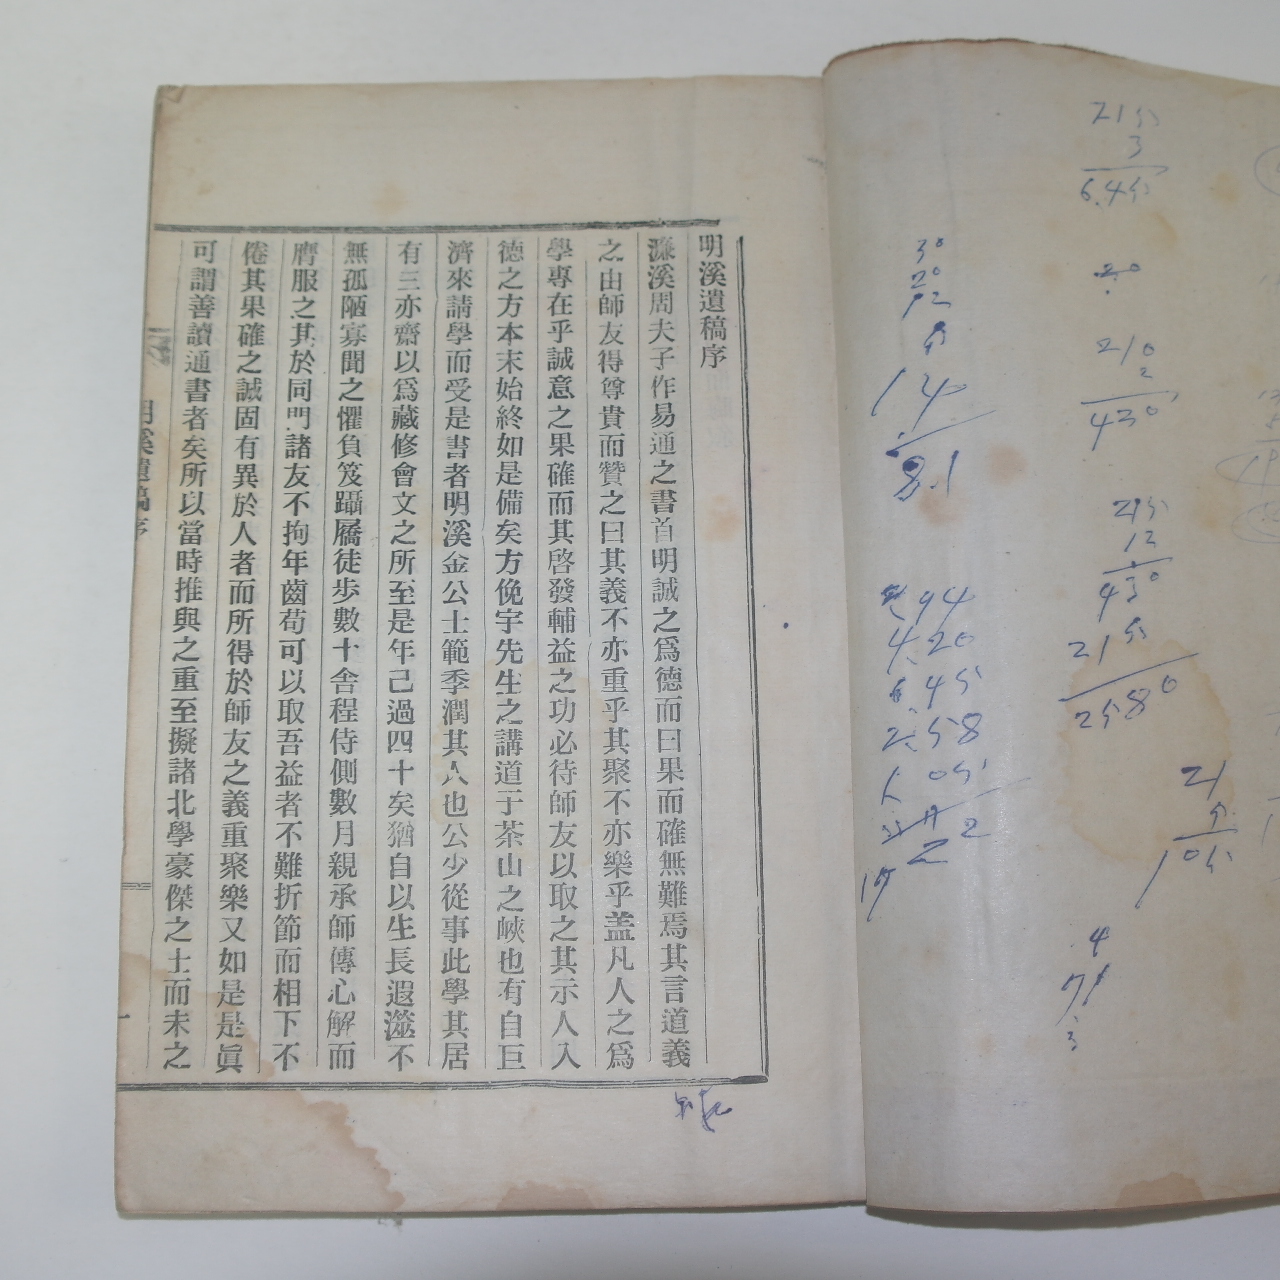 明溪遺稿序
濂溪周夫子作易通之書首明誠之爲德而曰果而確無難焉其言道義
之由師友得尊貴而贊之曰其義不亦重乎其聚不亦樂乎盖凡人之爲
學專在乎誠意之果確而其啓發輔益之功必待師友以取之其示人入
德之方本末始終如是備矣方俛宇先生之講道于茶山之峽也有自巨
濟來請學而受是書者明溪金公士範季潤其人也公少從事此學其居
有三亦齋以爲藏修會文之所至是年已過四十矣猶自以生長遐澨不
無孤陋寡聞之懼負笈躡屩徒步數十舍程侍側數月親承師傳心解而
膺服之其於同門諸友不拘年齒苟可以取吾益者不難折節而相下不
倦其果確之誠固有異於人者而所得於師友之義重聚樂又如是是眞
可謂善讀通書者矣所以當時推與之重至擬諸北學豪傑之士而未之
明溪遺稿序
一
3
20
210
2
430
12
430
30
20
12
14
81
4.20
2.58
2580
21
4
3